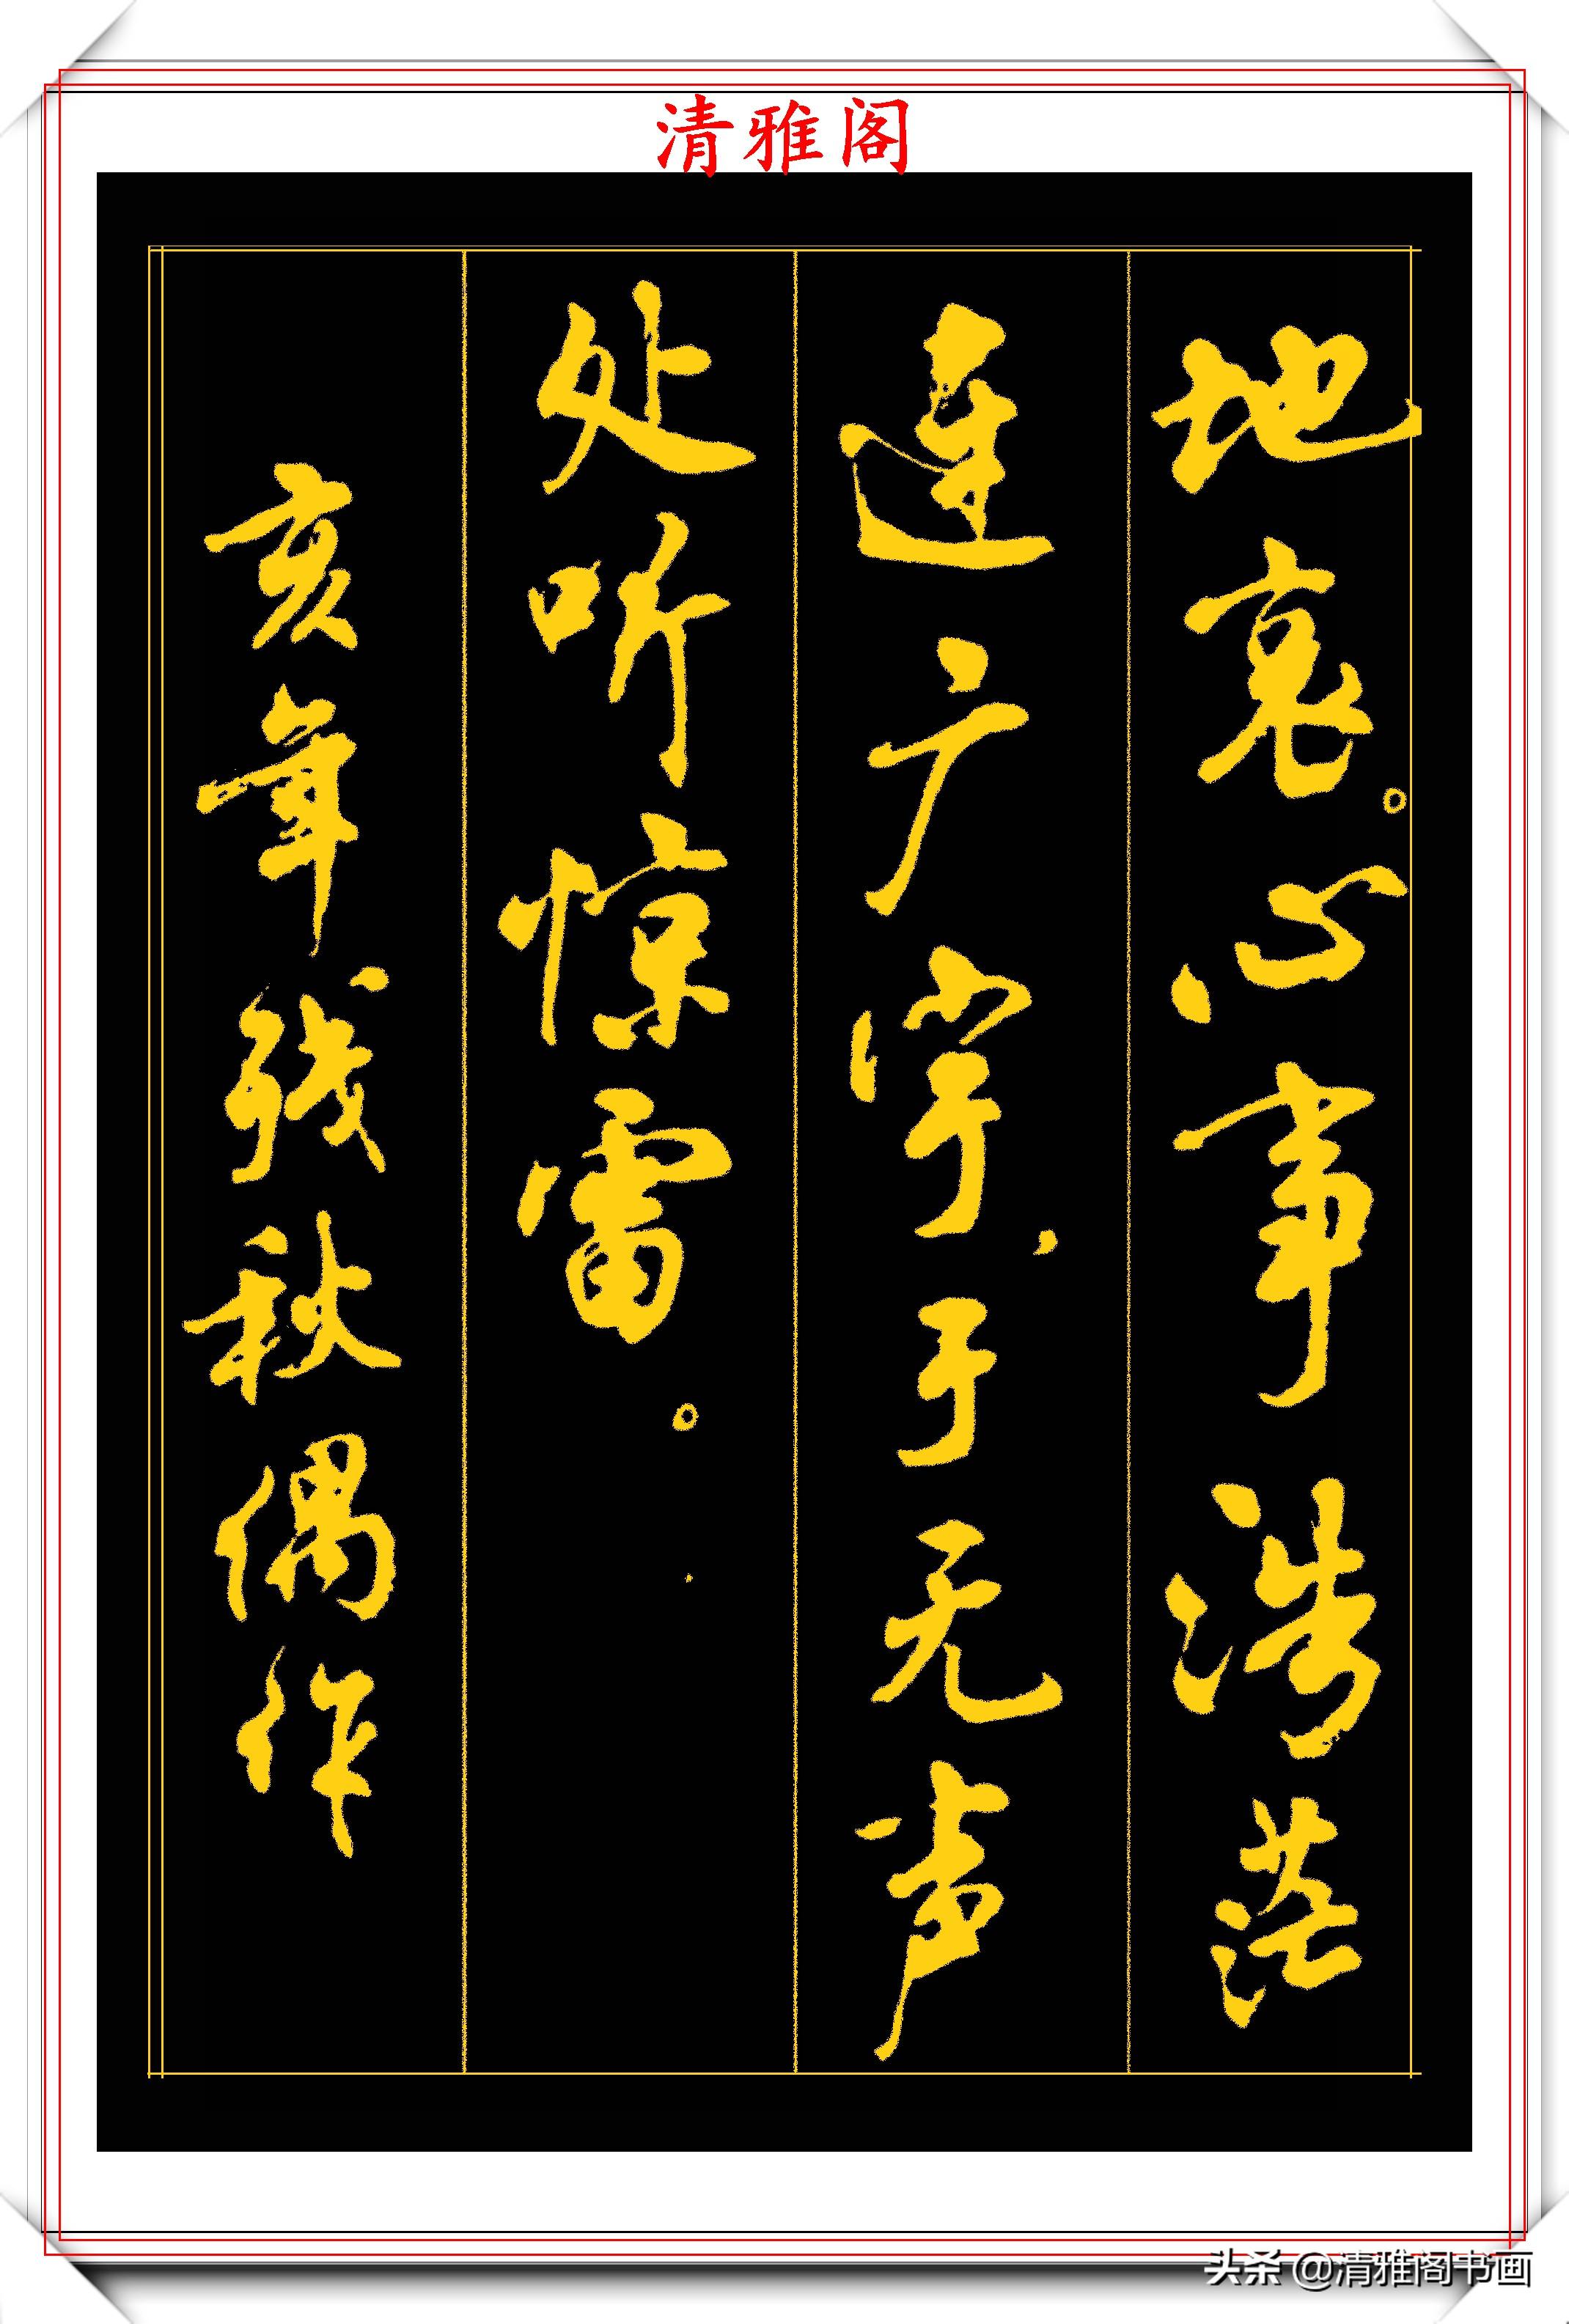 清雅阁
地哀。心事浩茫
连广宇，于无声
处听惊雷。
亥年残秋偶作
头条 @清雅阁书画